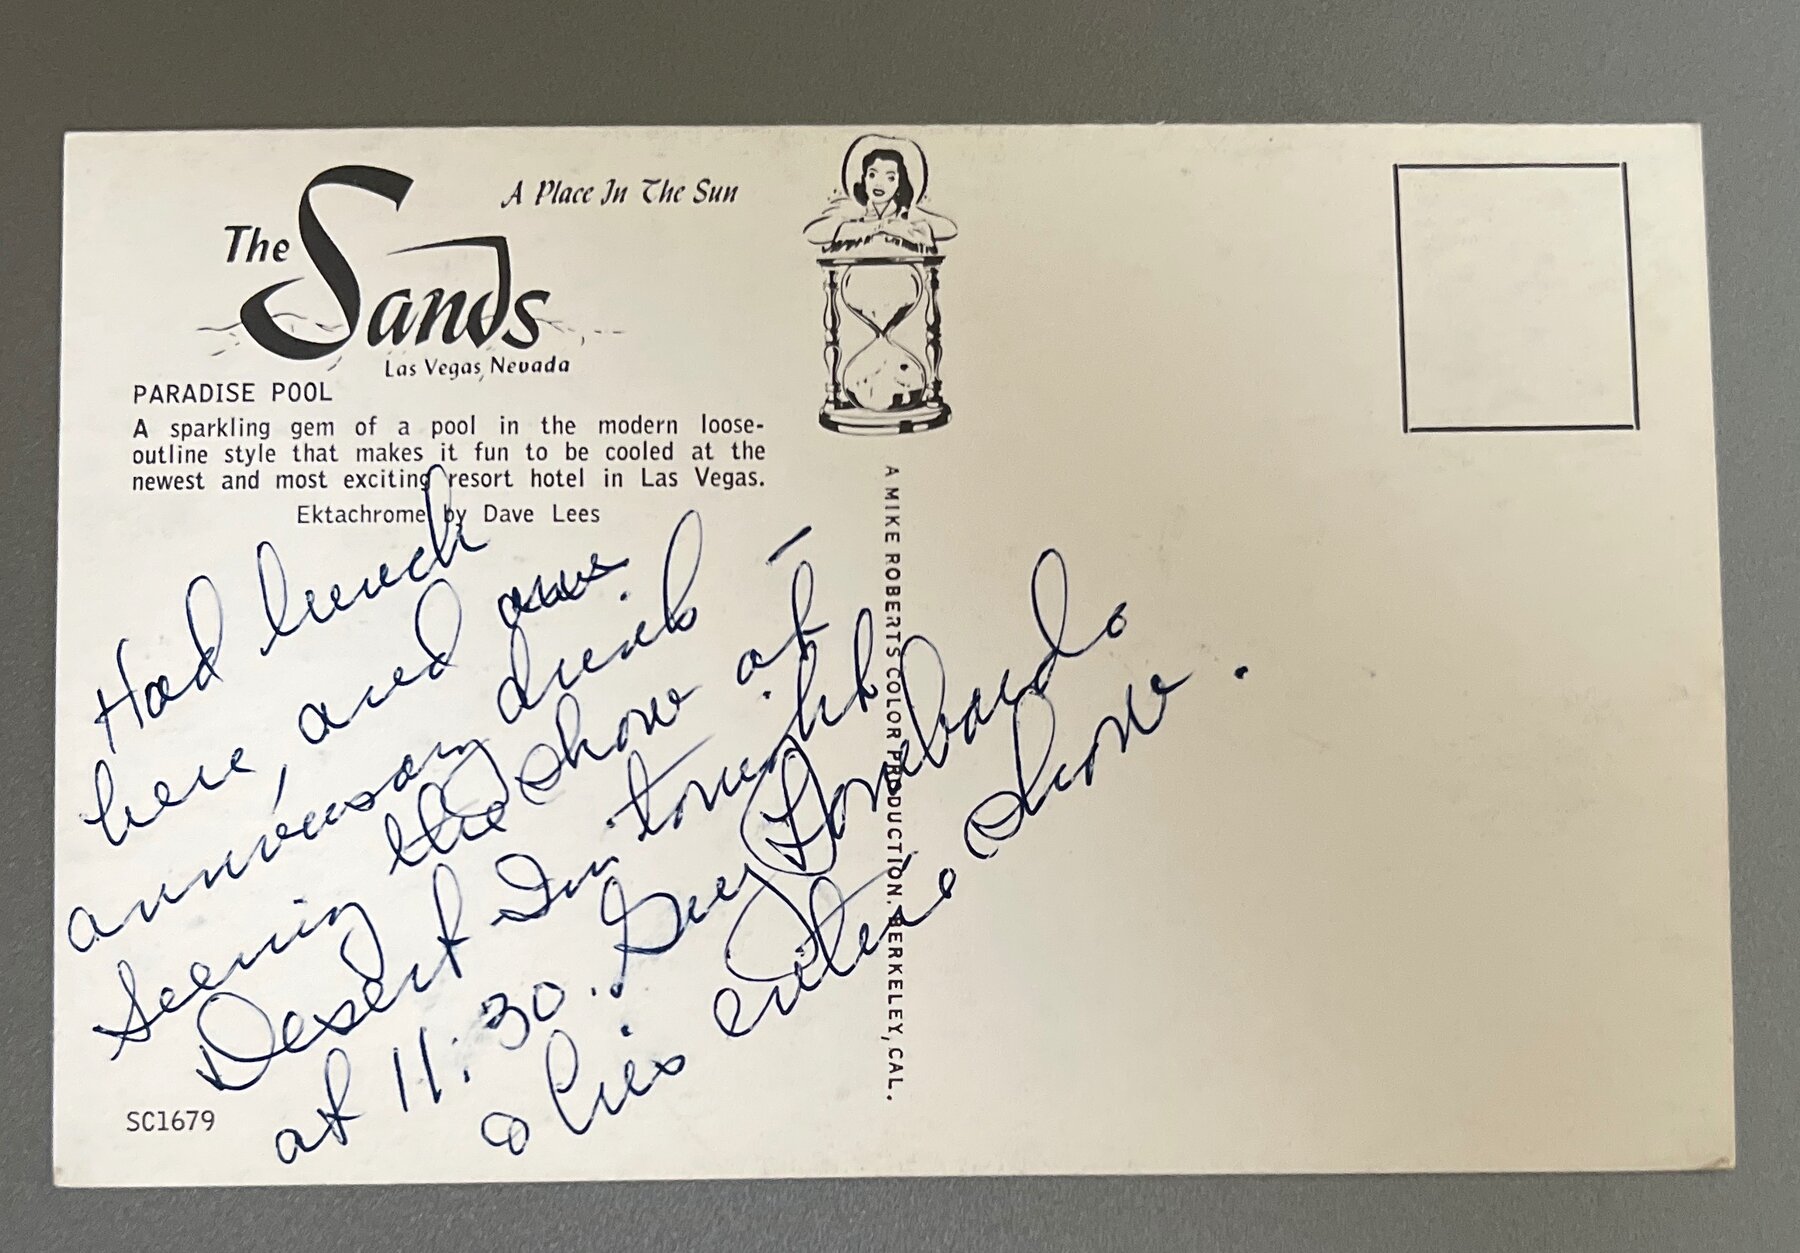 A Place In The Sun
The Sands
Las Vegas, Nevada
PARADISE POOL
A sparkling gem of a pool in the modern loose-
outline style that makes it fun to be cooled at the
newest and most exciting resort hotel in Las Vegas.
Ektachrome by Dave Lees
Had lunch
here, and our
anniversary drink
Seeing the show at
Desert Inn tonight
at 11:30. Guy Lombardo
& his entire show.
SC1679
A MIKE ROBERTS COLOR PRODUCTION. BERKELEY, CAL.